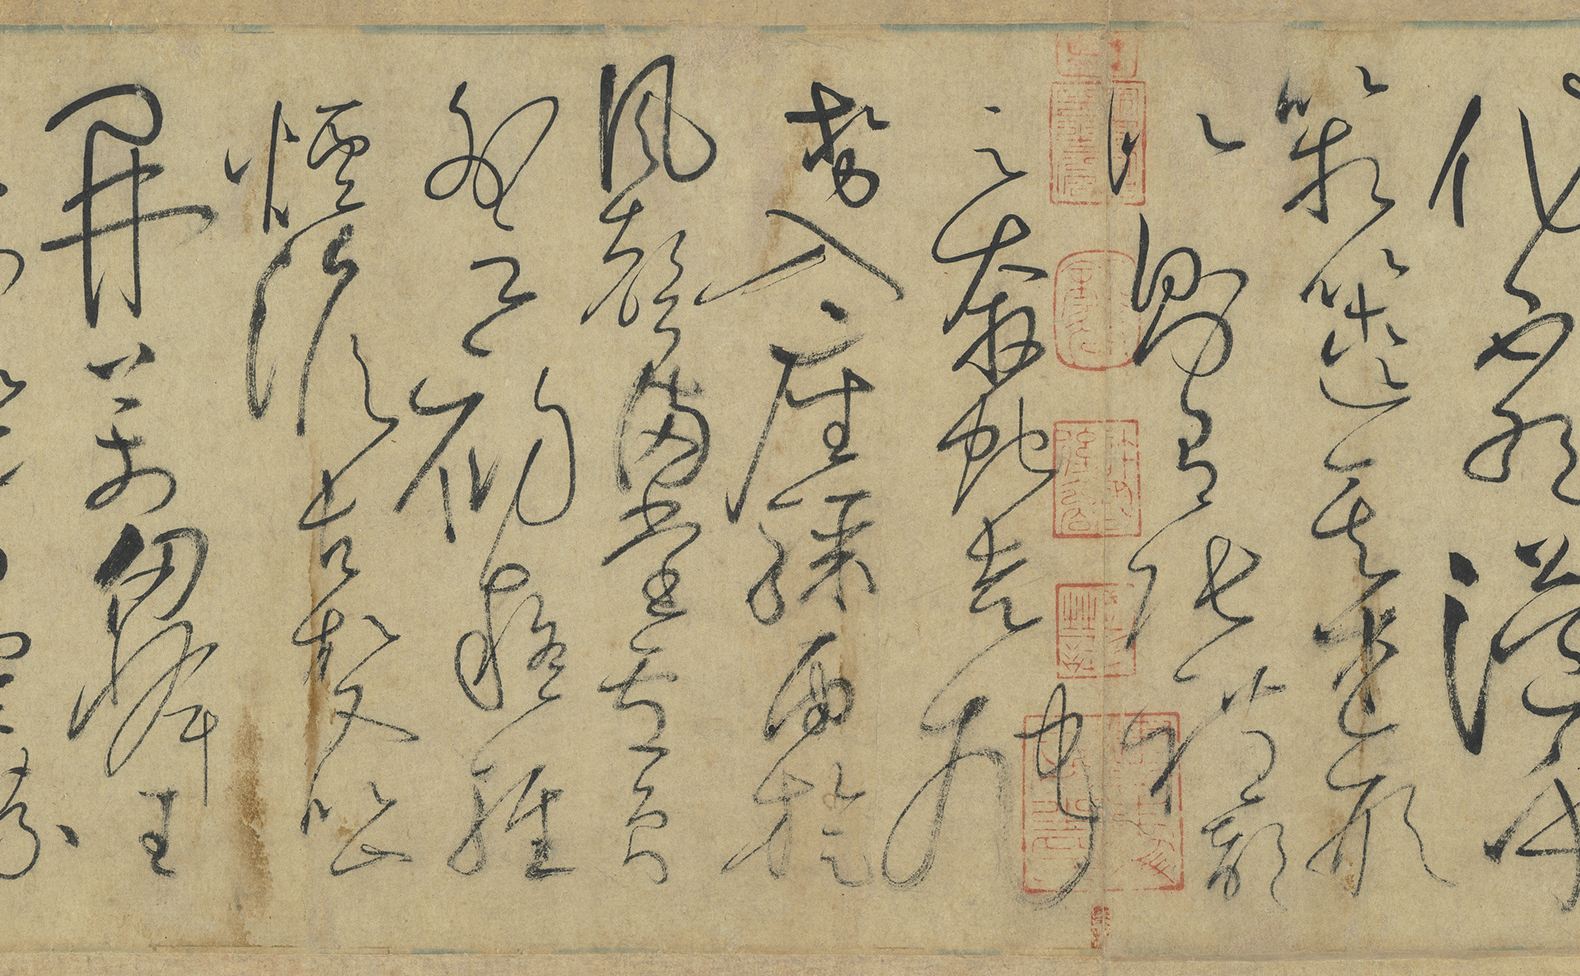 作不絕溢乎
箱篋其述形
似則有張禮部
云奔蛇走虺
勢入座驟雨旋
風聲滿堂盧員
外云初疑輕
煙澹古松又似山
開萬仞峰王